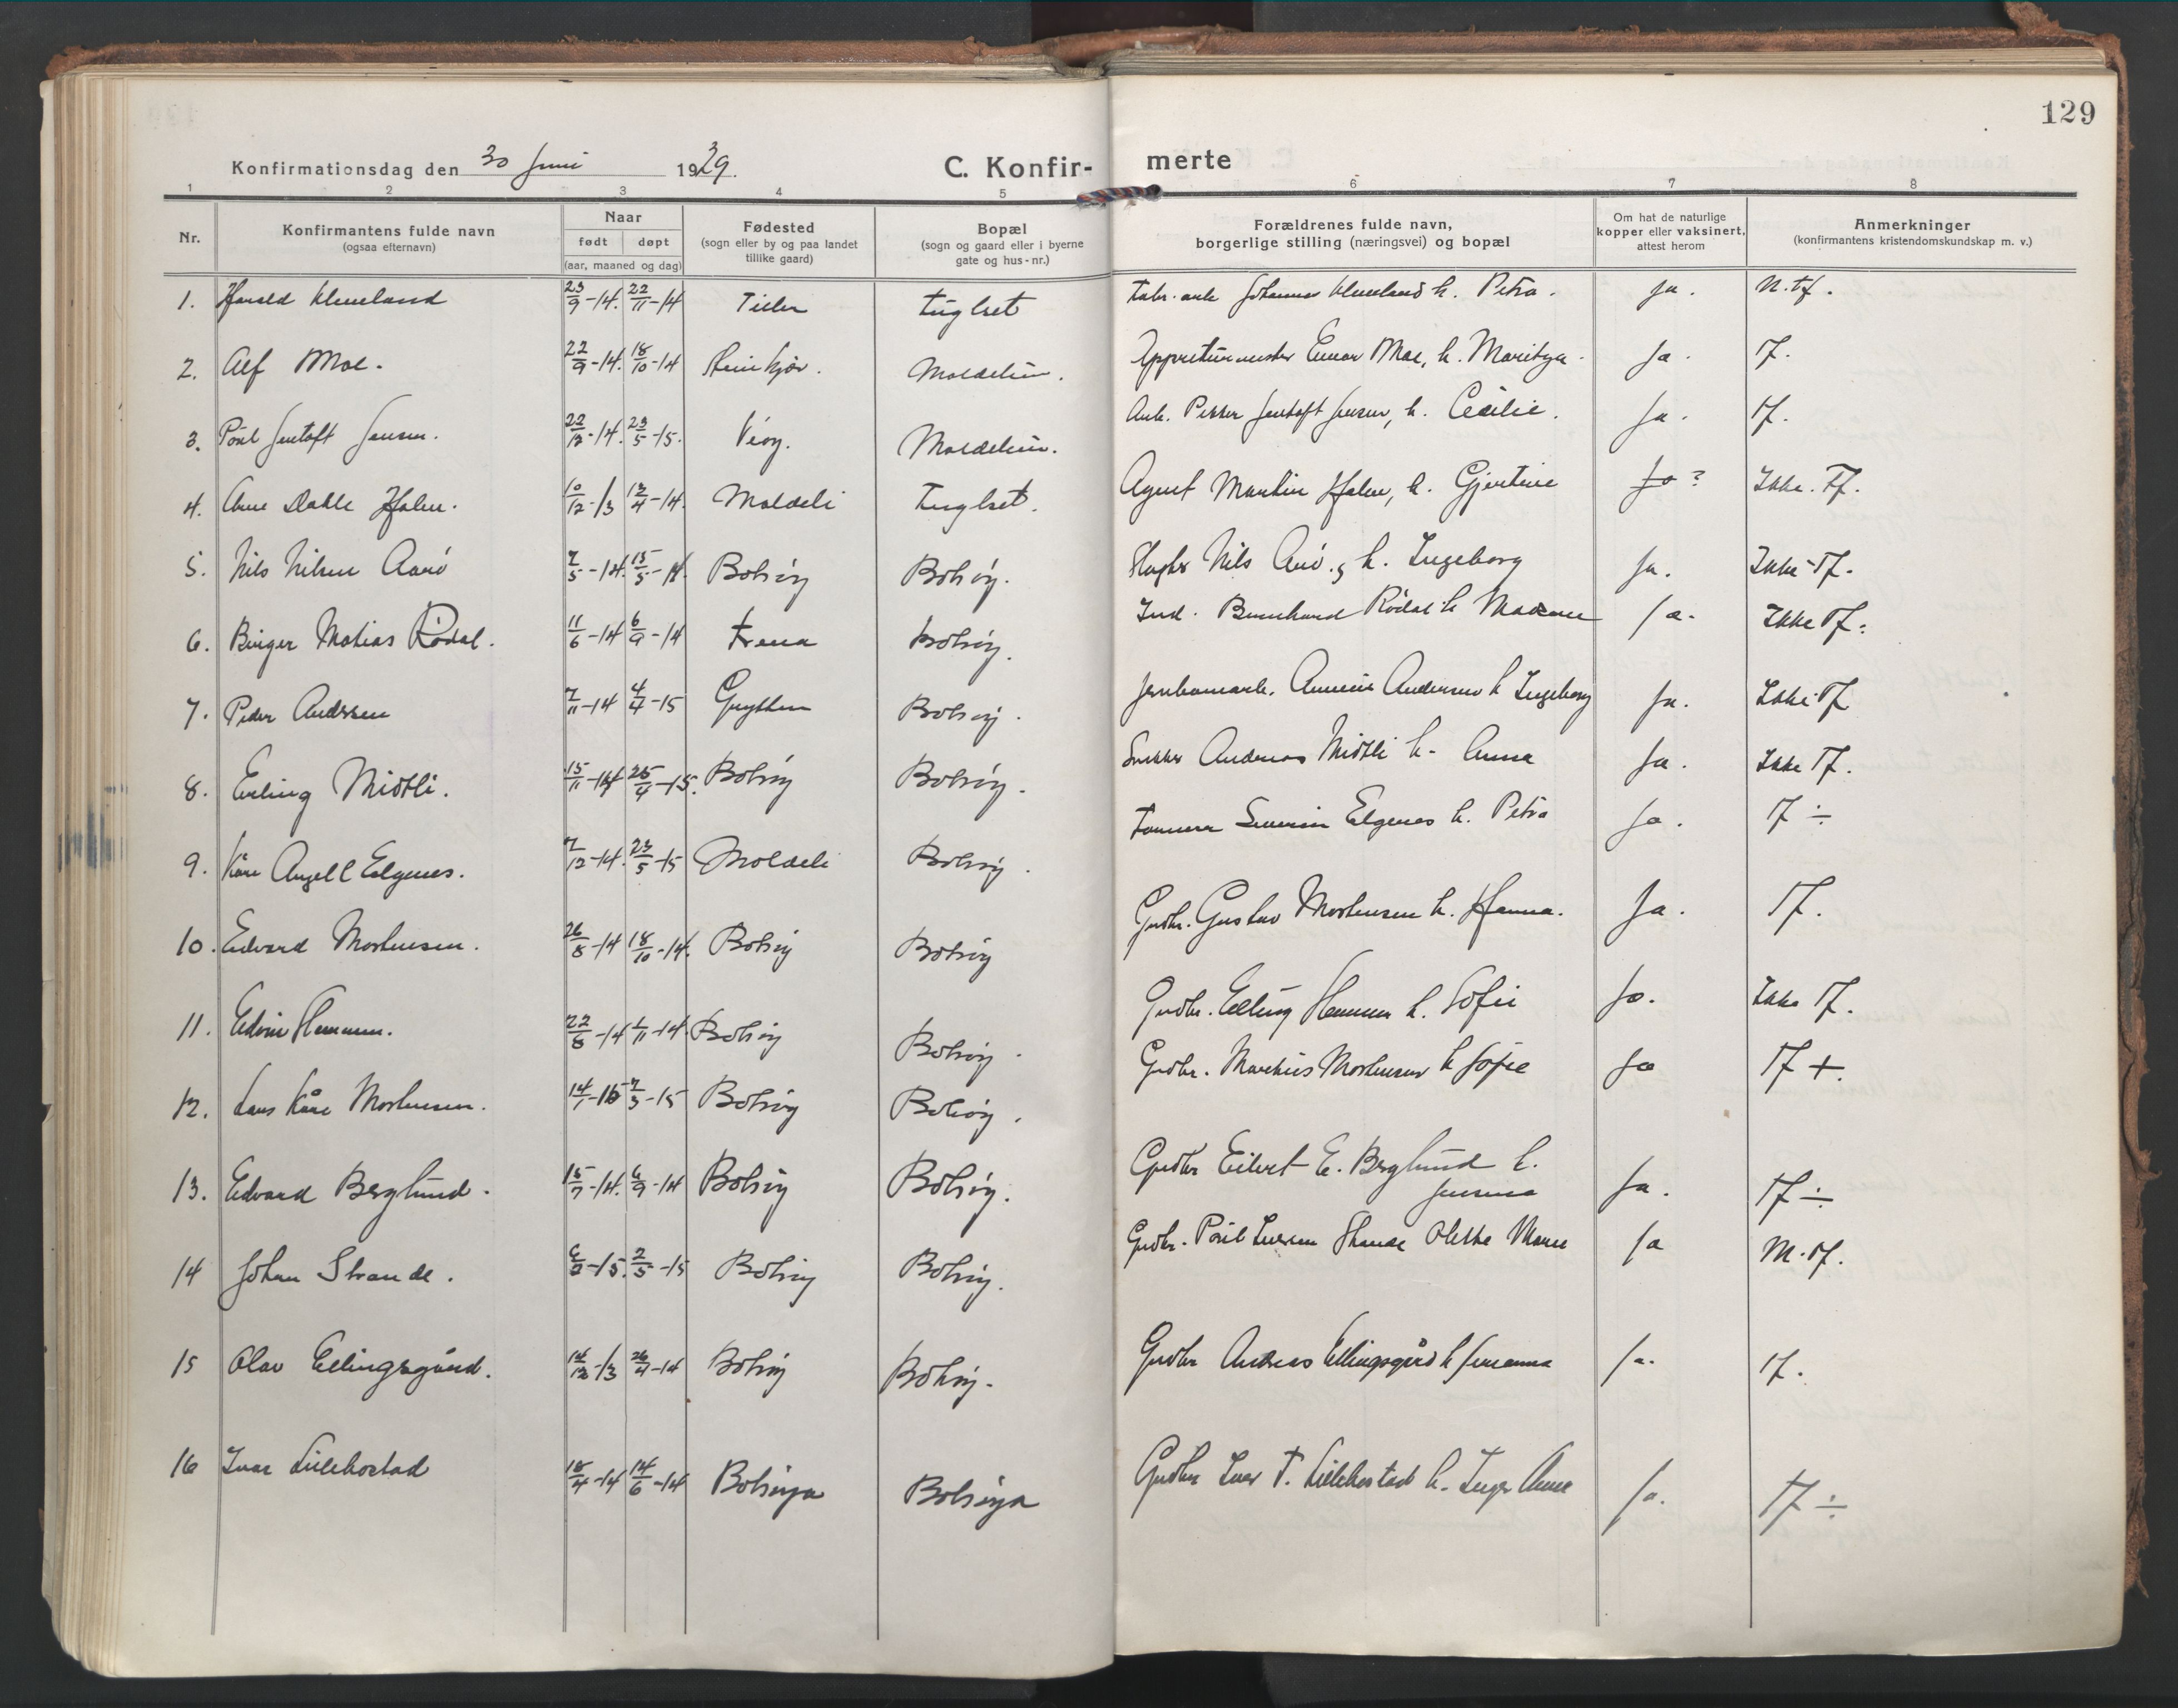 129
Konfirmationsdag den 30 Juni 1929. C. Konfirmerte
1 2 3 4 5 6 7 8
Nr. Konfirmantens fulde navn (ogsaa efternavn) Naar født døpt (aar, maaned og dag) Fødested (sogn eller by og paa landet tillike gaard) Bopæl (sogn og gaard eller i byerne gate og hus-nr.) Forældrenes fulde navn, borgerlige stilling (næringsvei) og bopæl Om hat de naturlige kopper eller vaksinert, attest herom Anmerkninger (konfirmantens kristendomskundskap m. v.)
1. Harald 23/9-14. 22/11-14 Tiller Fuglset Johannes h. Petra. Ja. N.tf.
2. Alf Moe. 22/9-14. 18/10-14 Steinkjær. Moldelien. Einar Moe, h. Ja. Tf.
3. Pōul Jentoft Jensen. 22/12-14. 23/5-15. Veøy. Moldelien. Arb. Petter Jentoft Jensen, h. Cecilie. Ja. Tf.
4. Arne Dahle Halen. 10/12-13 13/4-14. Moldeli Fuglset. Agent Martin Halen, h. Gjertine Ja? Ikke. Tf.
5. Nils Nilsen Aarö 2/5-14. 15/5-14. Bolsöy Bolsöy. Nils Aarö, h. Ingeborg Ja. Ikke Tf.
6. Birger Matias Rødal. 11/6-14 6/9-14 Bolsöy. Ind. Bernhard Rödal h Ja. Ikke Tf.
7. Peder Andersen 7/11-14 4/4-15 Grytten Bolsöy. Andersen h Ingeborg Ja. Ikke Tf
8. Erling Midtli. 15/11-14 25/4-15. Bolsöy Bolsöy. Snekker Andreas Midtli h. Anna Ja. Ikke Tf.
9. Kåre Angell Elgenes. 7/12-14. 23/5-15 Moldeli Bolsöy. Severin Elgenes h. Petra Ja. Tf ÷
10. Edvard Mortensen. 26/8-14 18/10-14. Bolsöy Bolsöy Grdbr. Gustav Mortensen h. Hanna. Ja. Tf.
11. Edvin Hammen. 22/8-14 1/11-14. Bolsöy Bolsöy. Grdbr. Elling Hammen h. Sofie Ja. Ikke Tf.
12. Lars Kåre Mortensen. 14/1-15 7/3-15 Bolsöy Bolsöy. Grdbr. Markus Mortensen h Sofie Ja Tf +.
13. Edvard Berglund. 15/7-14. 6/9-14 Bolsöy Bolsöy. Grdbr Eilert E. Berglund h. Jensina Ja. Tf ÷
14 Johan Strande. 6/2-15. 2/5-15 Bolsöy Bolsöy. Grdbr. Pōul Strande Ja M.tf.
15 Olav Ellingsgård. 14/12-13 26/4-14 Bolsöy Bolsöy. Grdbr Andreas Ellingsgård h Ja. Tf.
16 Ivar Lillebostad 18/4-14 14/6-14 Bolsöya Bolsöya Grdbr Iver T. Lillebostad h. Inger Anne Ja. Tf ÷